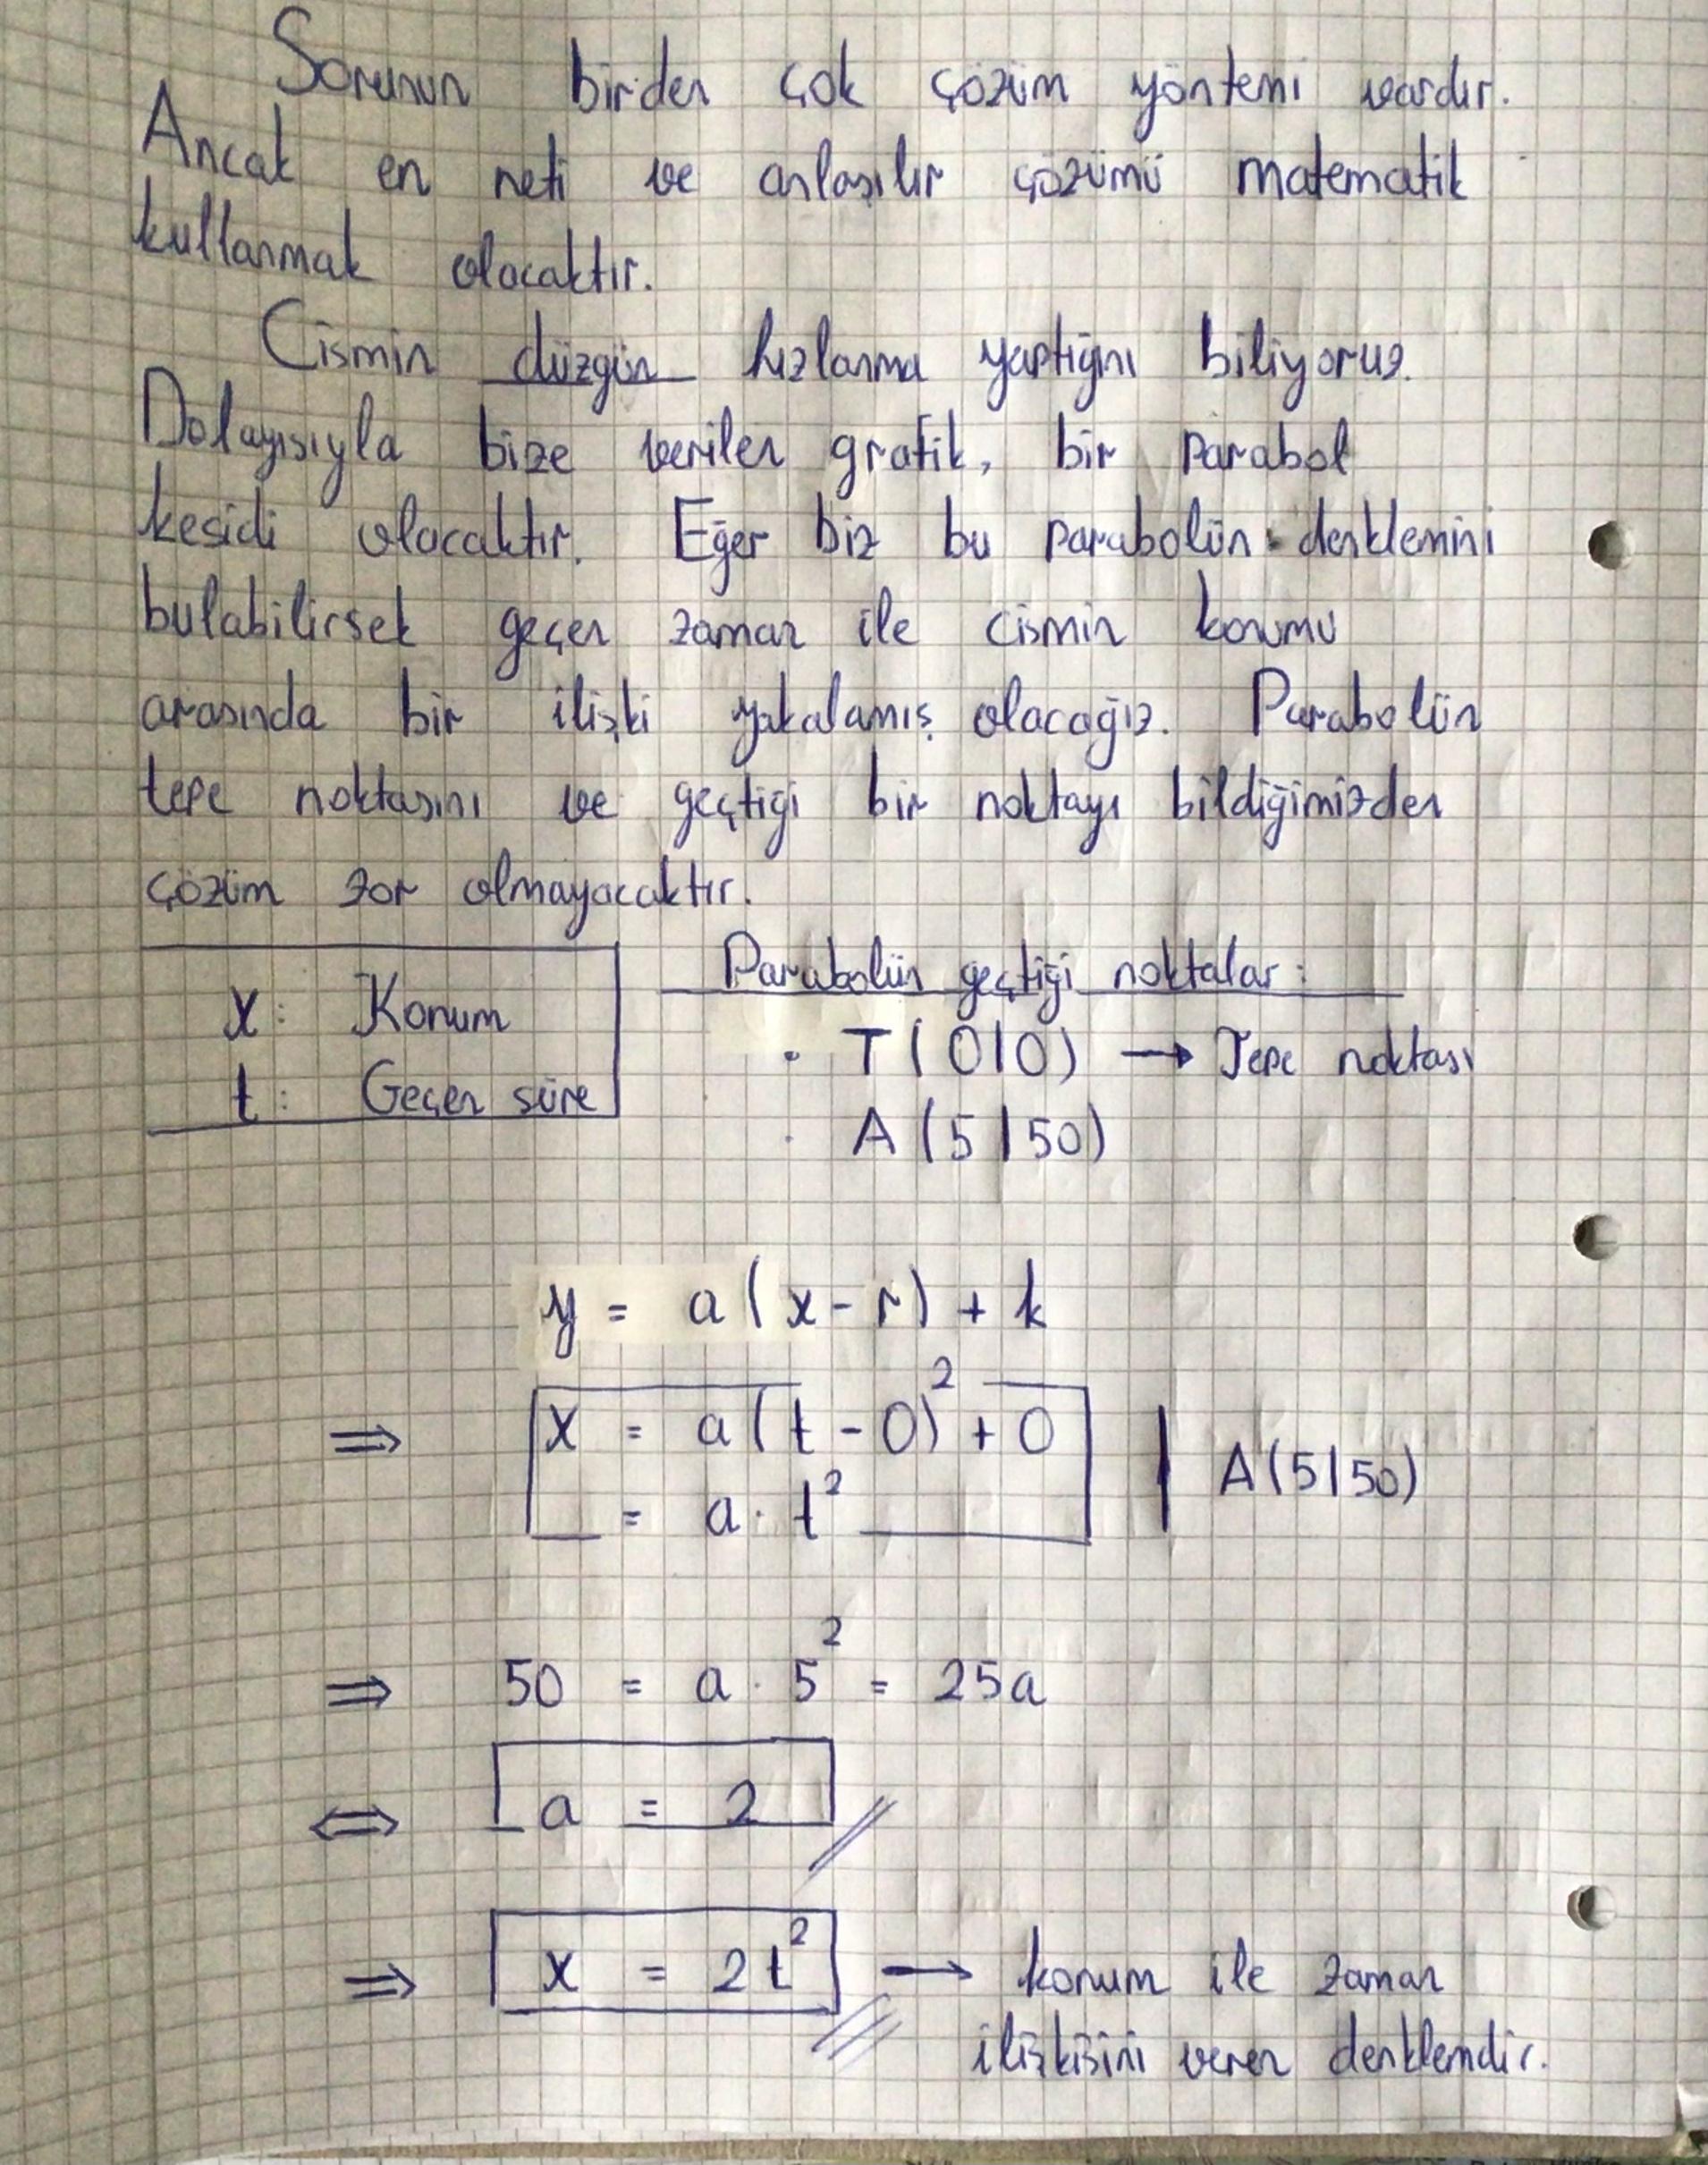 Sorunun birden çok çözüm yöntemi vardır.
Ancak en neti ve anlaşılır çözümü matematik
kullanmak olacaktır.
Cismin düzgün hızlanma yaptığını biliyoruz.
Dolayısıyla bize verilen grafik, bir parabol
kesidi olacaktır. Eğer biz bu parabolün denklemini
bulabilirsek geçen zaman ile cismin konumu
arasında bir ilişki yakalamış olacağız. Parabolün
tepe noktasını ve geçtiği bir noktayı bildiğimizden
çözüm zor olmayacaktır.
x: Konum
t: Geçen süre
Parabolün geçtiği noktalar:
· T(0|0) → Tepe noktası
· A(5|50)
y = a(x-r) + k
⇒ x = a(t-0)² + 0 | A(5|50)
= a·t²
⇒ 50 = a·5² = 25a
⇔ a = 2
⇒ x = 2t² → konum ile zaman
ilişkisini veren denklemdir.